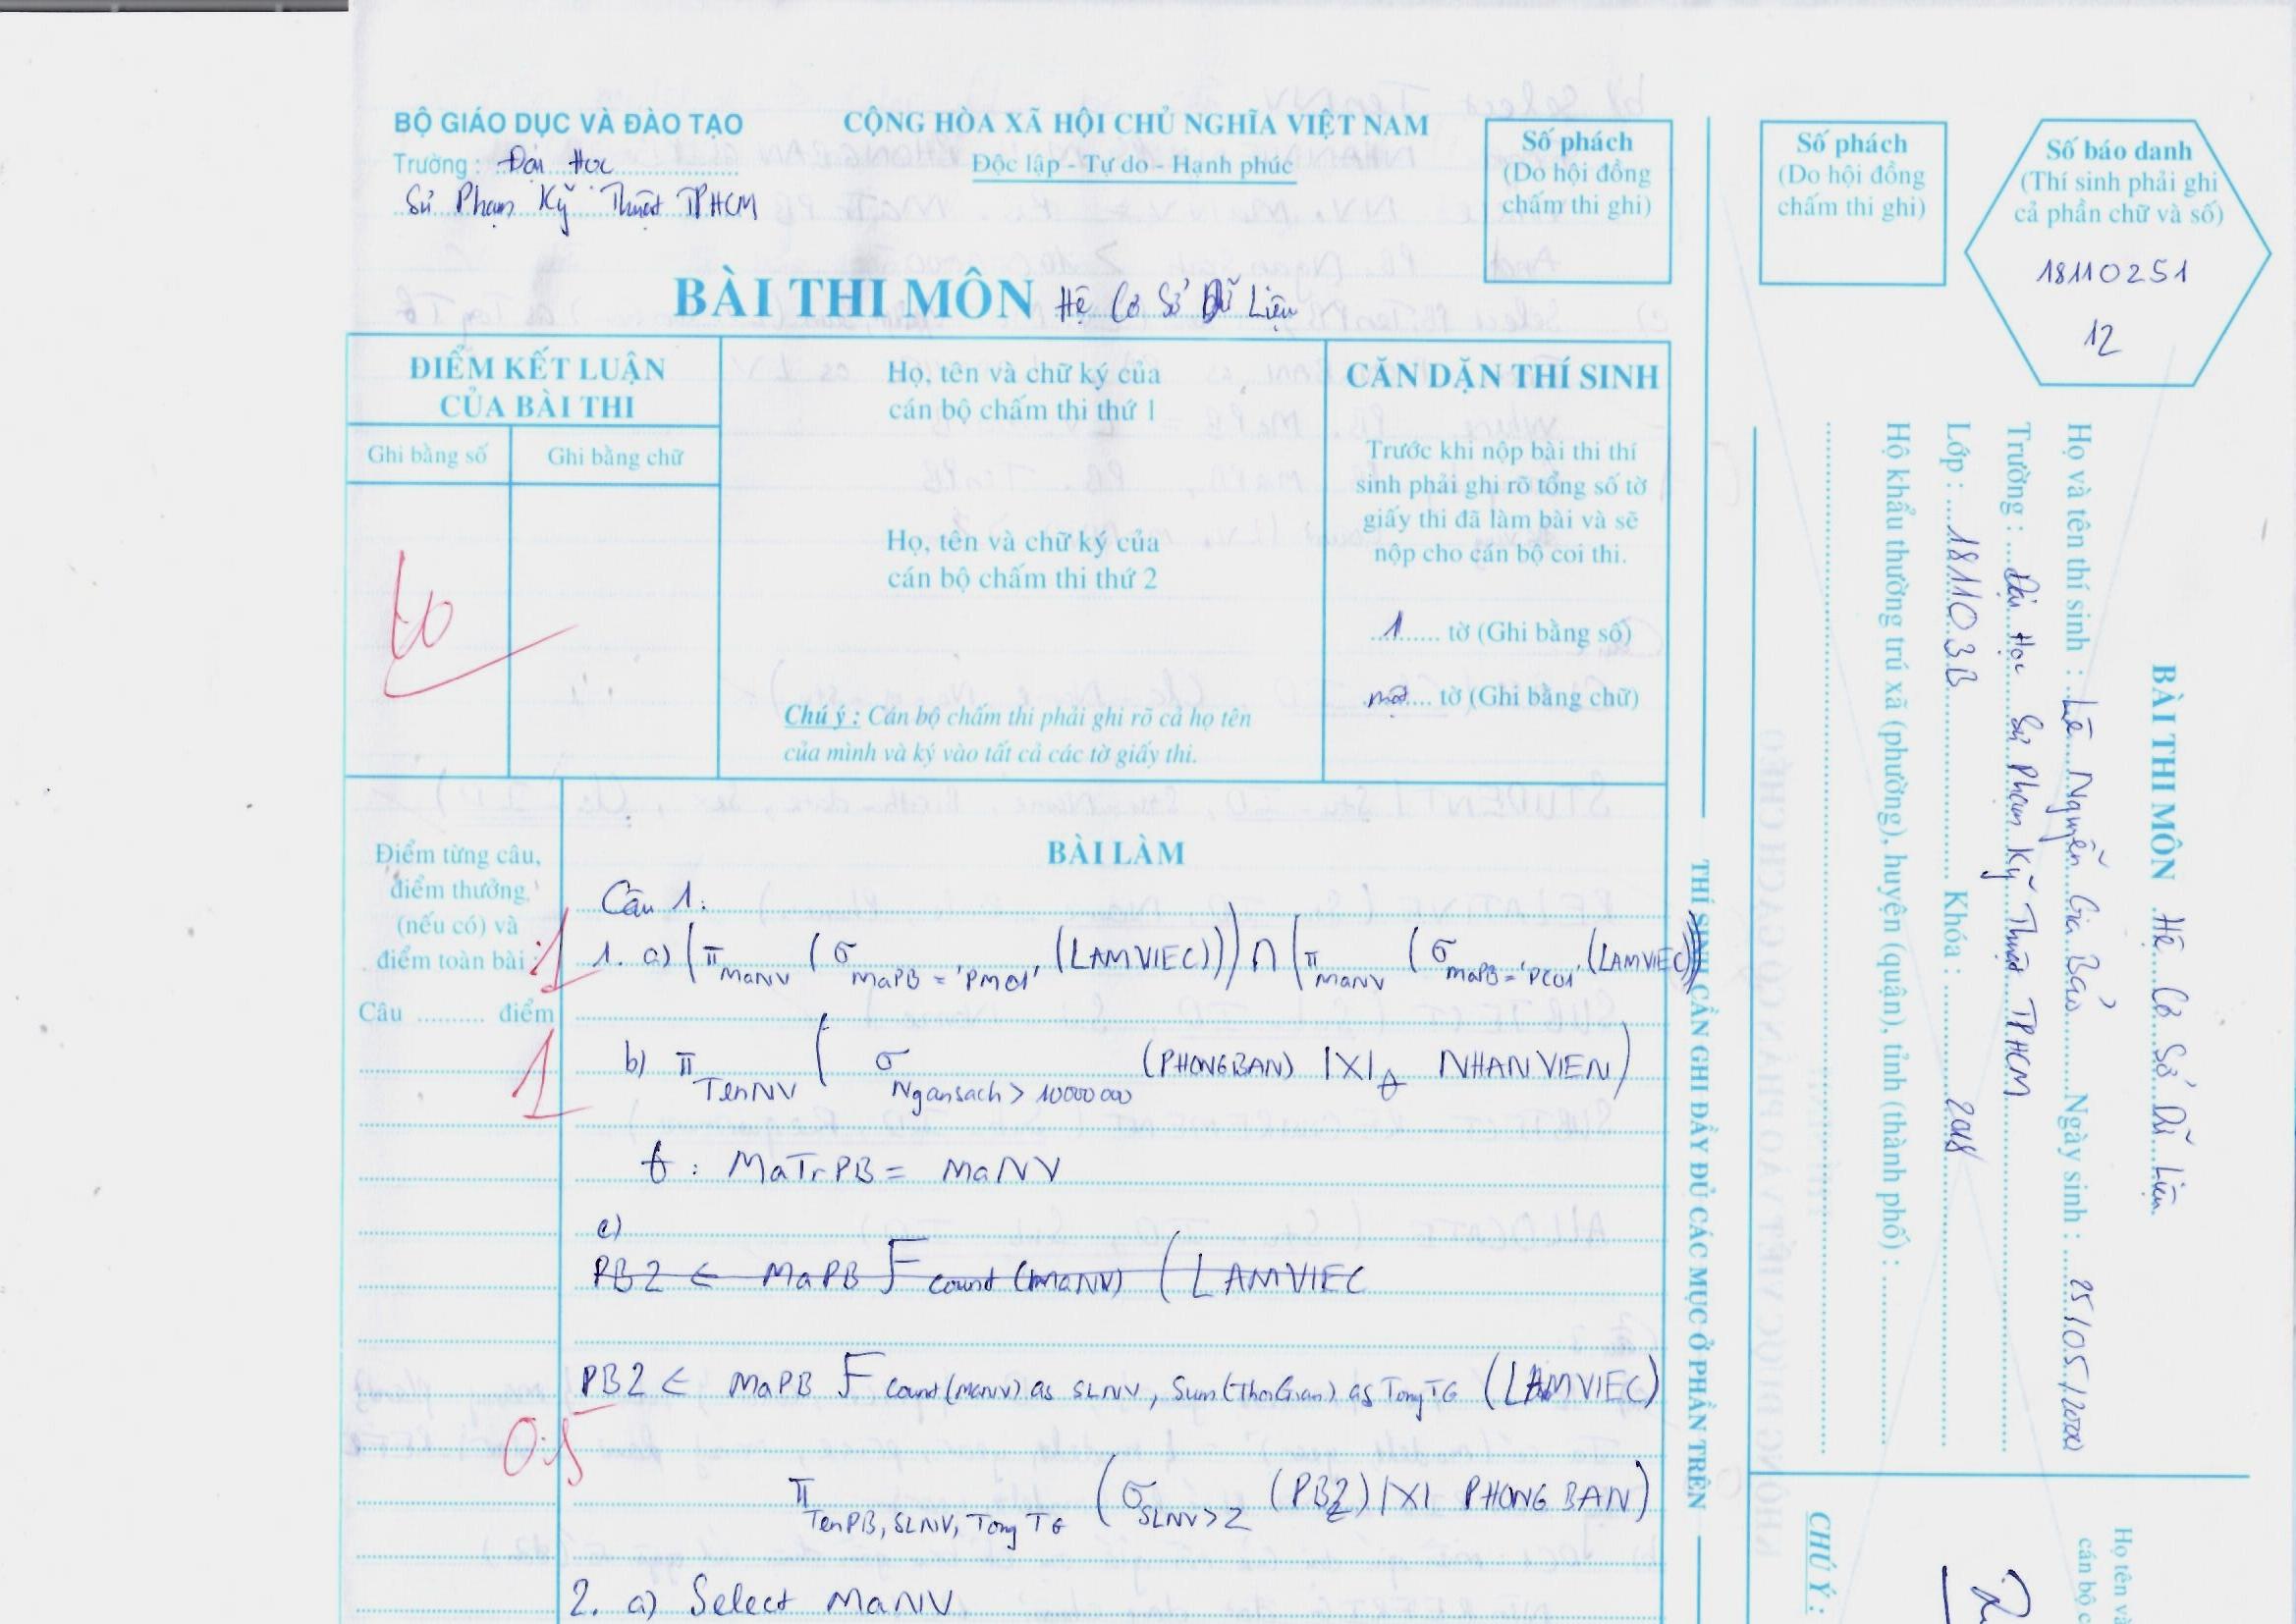 BỘ GIÁO DỤC VÀ ĐÀO TẠO
Trường : Đại Học
Sư Phạm Kỹ Thuật TPHCM
CỘNG HÒA XÃ HỘI CHỦ NGHĨA VIỆT NAM
Độc lập - Tự do - Hạnh phúc
BÀI THI MÔN Hệ Cơ Sở Dữ Liệu
Số phách
(Do hội đồng
chấm thi ghi)
Số phách
(Do hội đồng
chấm thi ghi)
Số báo danh
(Thí sinh phải ghi
cả phần chữ và số)
18110251
12
ĐIỂM KẾT LUẬN
CỦA BÀI THI
Ghi bằng số
Ghi bằng chữ
Họ, tên và chữ ký của
cán bộ chấm thi thứ 1
Họ, tên và chữ ký của
cán bộ chấm thi thứ 2
Chú ý : Cán bộ chấm thi phải ghi rõ cả họ tên
của mình và ký vào tất cả các tờ giấy thi.
CĂN DẶN THÍ SINH
Trước khi nộp bài thi thí
sinh phải ghi rõ tổng số tờ
giấy thi đã làm bài và sẽ
nộp cho cán bộ coi thi.
1 tờ (Ghi bằng số)
một tờ (Ghi bằng chữ)
Điểm từng câu,
điểm thưởng
(nếu có) và
điểm toàn bài :
Câu .......... điểm
1
1
0.5
BÀI LÀM
Câu 1:
1. a) (π MaNV (σ MaPB = 'PM01' (LAMVIEC))) ∩ (π MaNV (σ MaPB = 'PC01' (LAMVIEC)))
b) π TenNV ( σ Ngansach > 10000000 (PHONGBAN) |X| θ NHANVIEN)
θ : MaTrPB = MaNV
c)
PB2 ← MaPB F count (MaNV) (LAMVIEC
PB2 ← MaPB F count(MaNV) as SLNV, Sum(ThoiGian) as TongTG (LAMVIEC)
π TenPB, SLNV, TongTG (σ SLNV > 2 (PB2) |X| PHONGBAN)
2. a) Select MaNV
THÍ SINH CẦN GHI ĐẦY ĐỦ CÁC MỤC Ở PHẦN TRÊN
BÀI THI MÔN Hệ Cơ Sở Dữ Liệu
Họ và tên thí sinh : Lê Nguyễn Gia Bảo Ngày sinh : 25/05/2000
Trường : Đại Học Sư Phạm Kỹ Thuật TPHCM
Lớp : 181103B Khóa : 2018
Hộ khẩu thường trú xã (phường), huyện (quận), tỉnh (thành phố) :
Họ tên và
cán bộ c
CHÚ Ý :